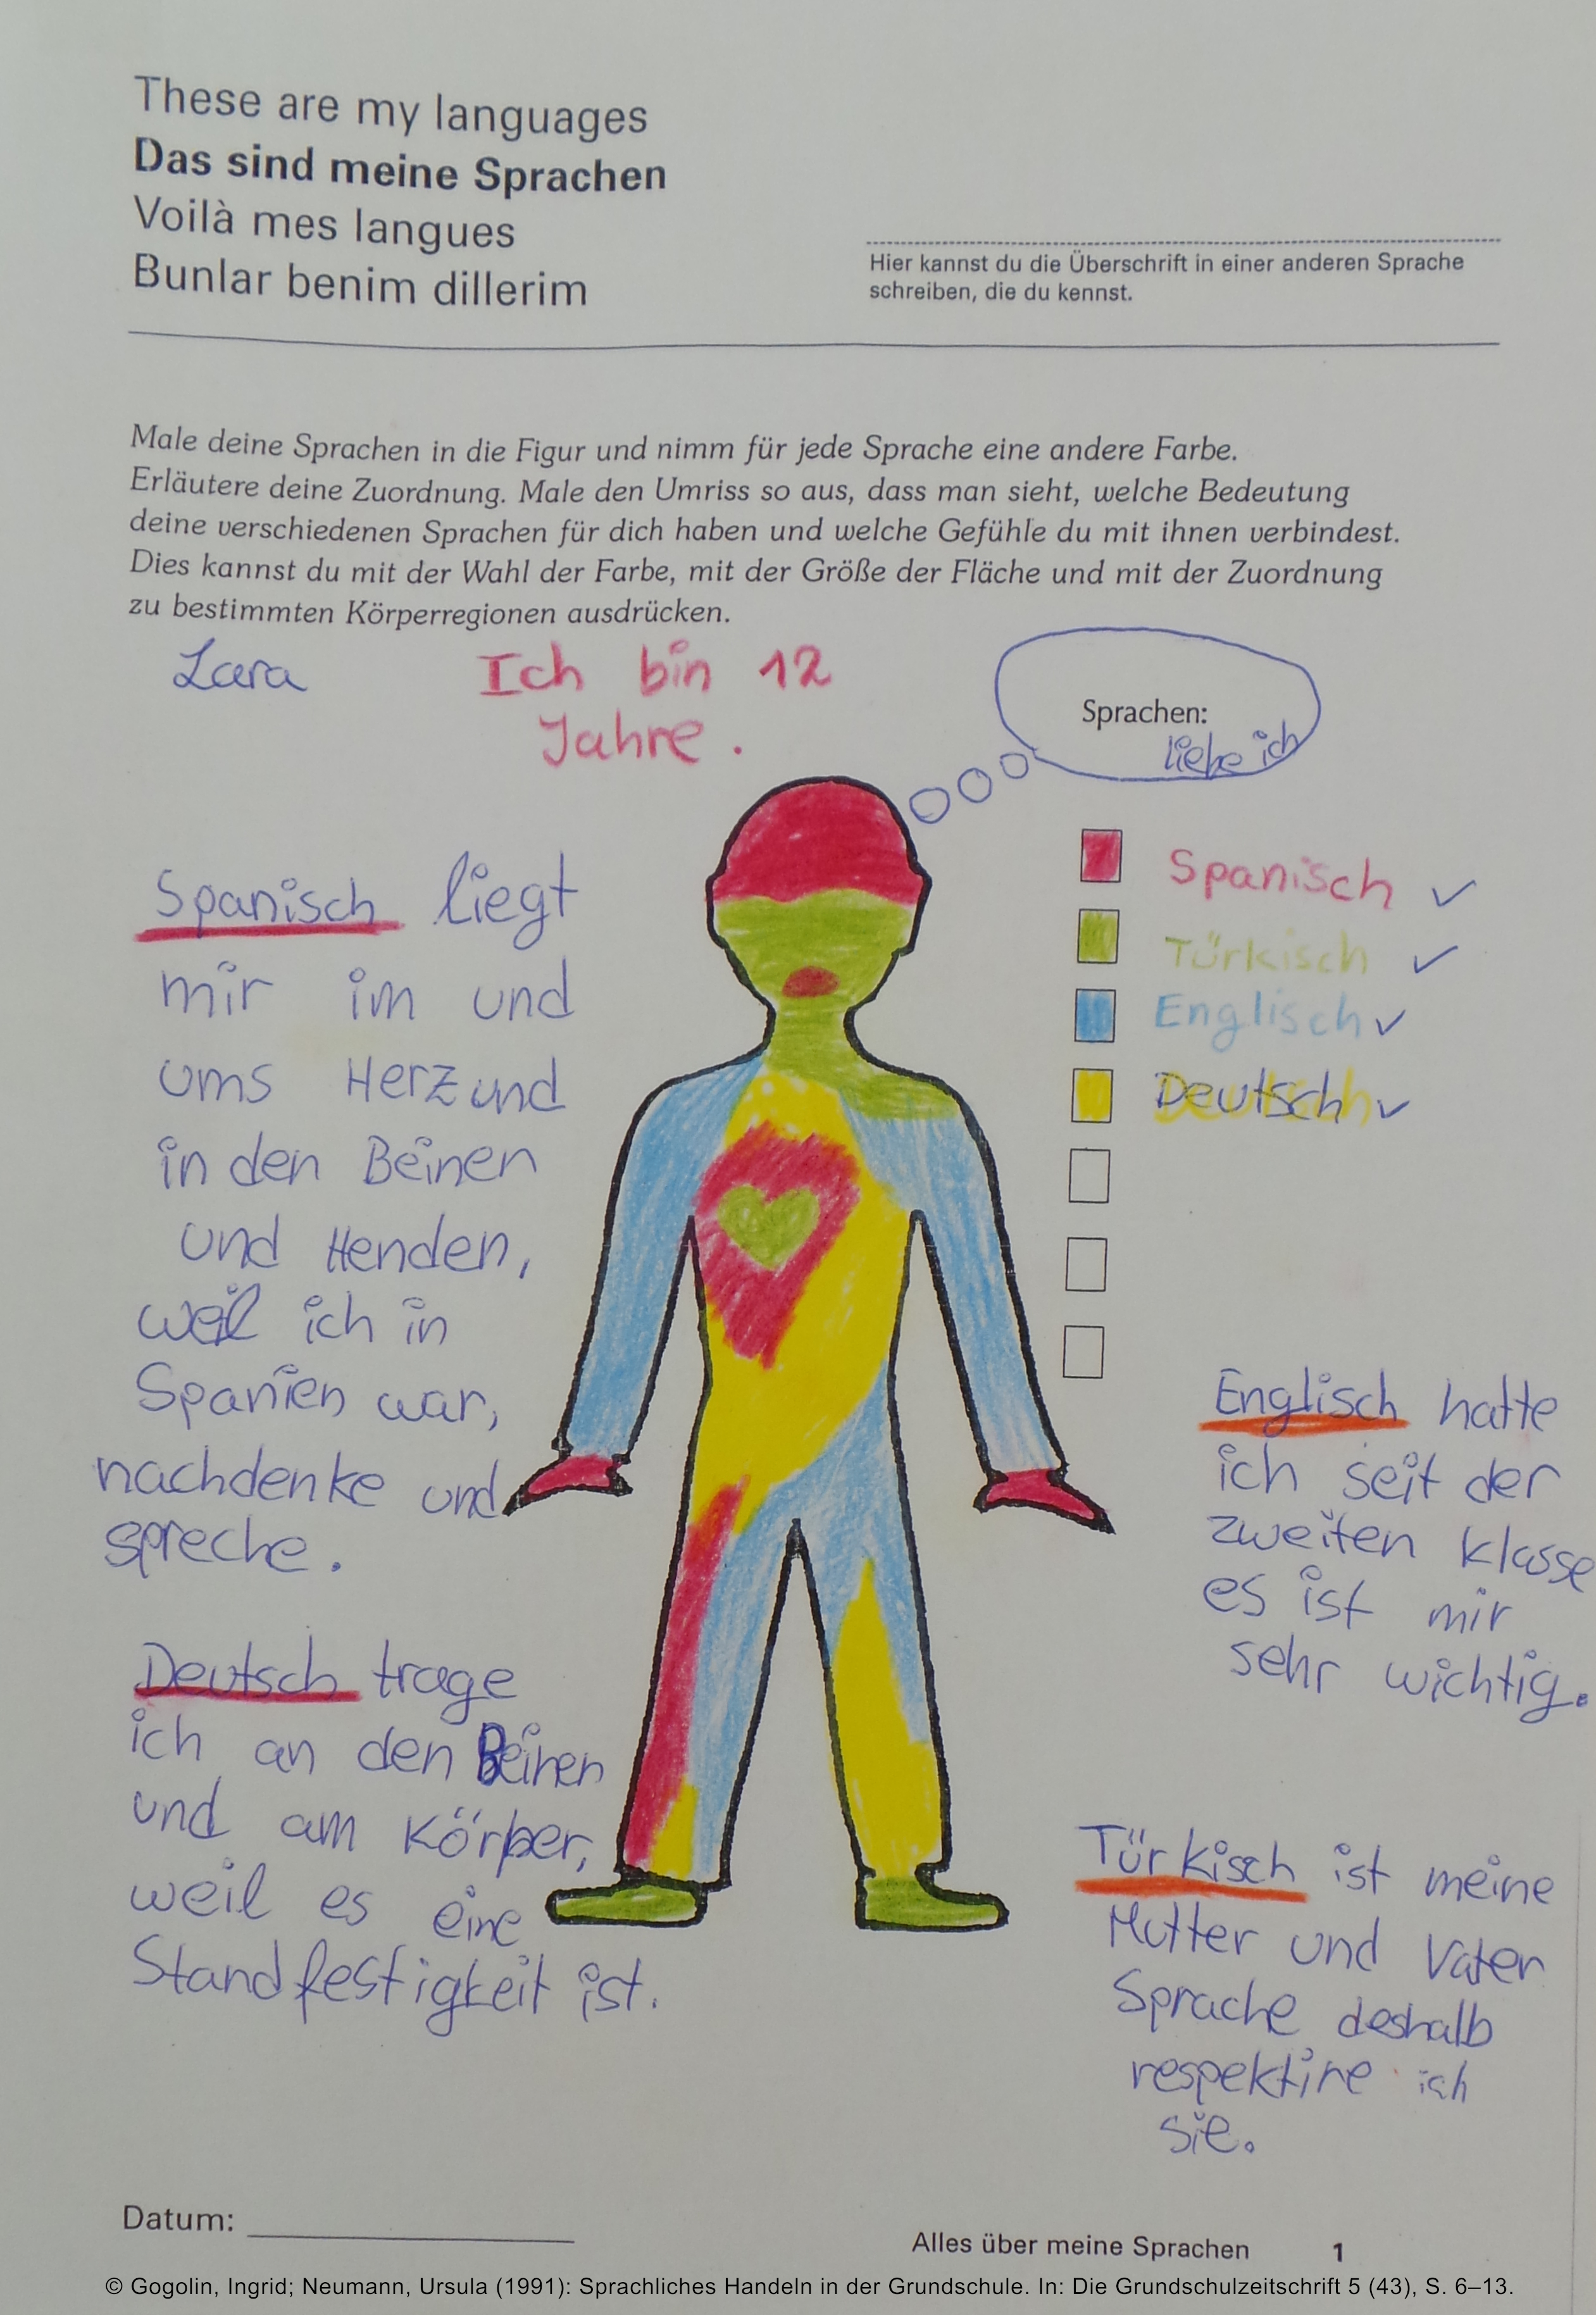 These are my languages
Das sind meine Sprachen
Voilà mes langues
Bunlar benim dillerim
Hier kannst du die Überschrift in einer anderen Sprache
schreiben, die du kennst.
Male deine Sprachen in die Figur und nimm für jede Sprache eine andere Farbe.
Erläutere deine Zuordnung. Male den Umriss so aus, dass man sieht, welche Bedeutung
deine verschiedenen Sprachen für dich haben und welche Gefühle du mit ihnen verbindest.
Dies kannst du mit der Wahl der Farbe, mit der Größe der Fläche und mit der Zuordnung
zu bestimmten Körperregionen ausdrücken.
Lara
Ich bin 12
Jahre.
Sprachen:
liebe ich
Spanisch ✓
Türkisch ✓
Englisch ✓
Deutsch ✓
Spanisch liegt
mir im und
ums Herz und
in den Beinen
und Henden,
weil ich in
Spanien war,
nachdenke und
spreche.
Deutsch trage
ich an den Beinen
und am Körper,
weil es eine
Standfestigkeit ist.
Englisch hatte
ich seit der
zweiten klasse
es ist mir
sehr wichtig.
Türkisch ist meine
Mutter und Vater
Sprache deshalb
respektire ich
sie.
Datum:
Alles über meine Sprachen 1
© Gogolin, Ingrid; Neumann, Ursula (1991): Sprachliches Handeln in der Grundschule. In: Die Grundschulzeitschrift 5 (43), S. 6–13.